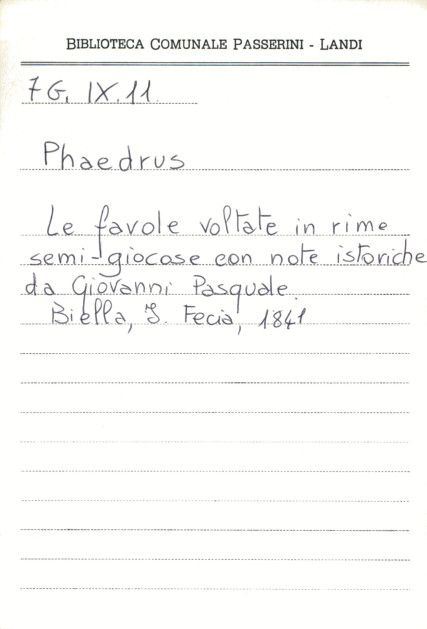 BIBLIOTECA COMUNALE PASSERINI - LANDI
7 G. IX.11
Phaedrus
Le favole voltate in rime
semi-giocose con note istoriche
da Giovanni Pasquale.
Biella, J. Fecia, 1841